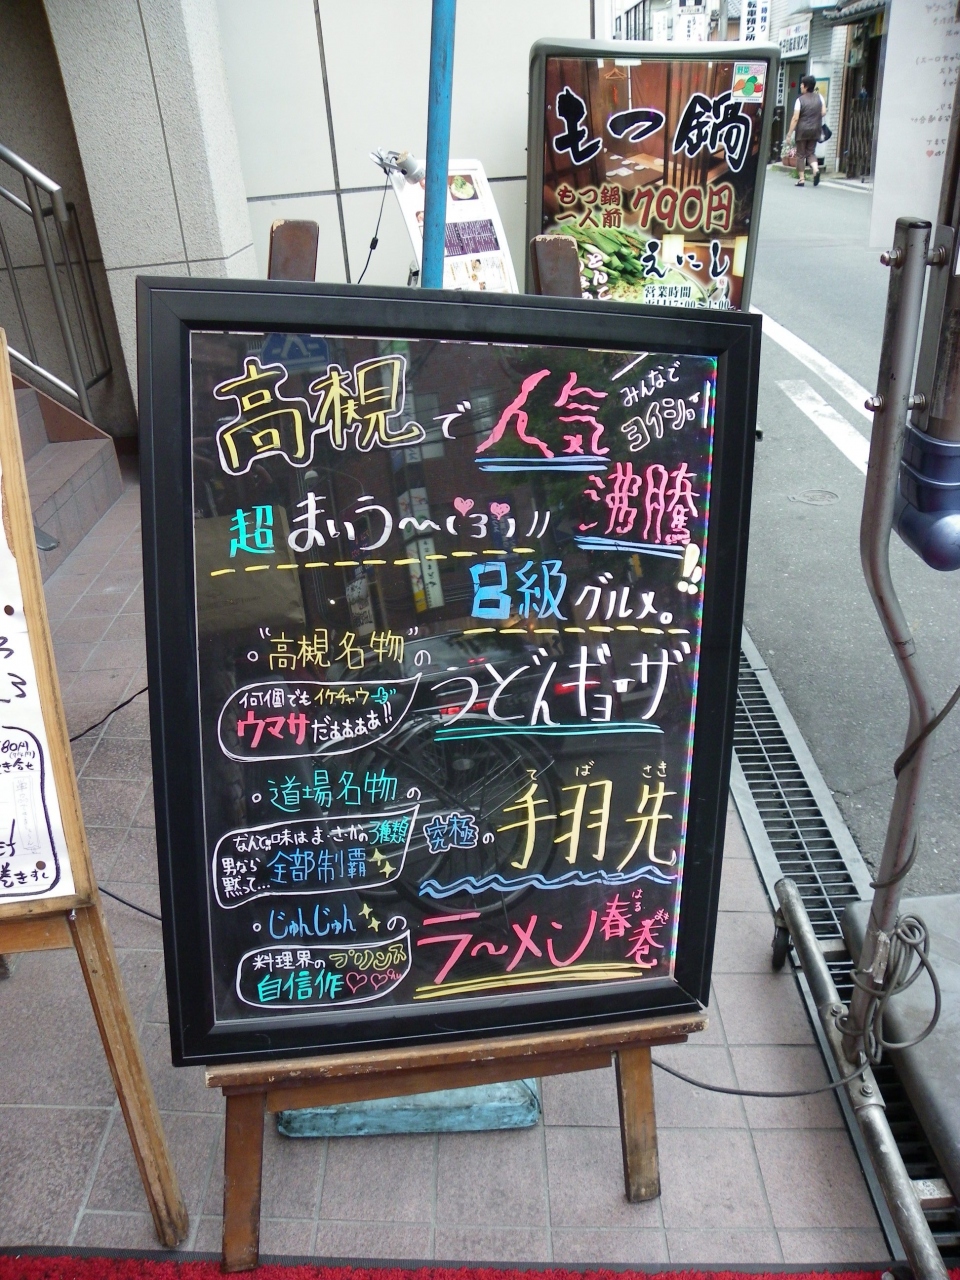 もつ鍋
もつ鍋
一人前
790円
えにし
営業時間
高槻で人気
みんなで
ヨイショー!
沸騰!!
超まいう〜(3)//
B級グルメ。
"高槻名物"の
うどんギョーザ
何個でもイケチャウ
ウマサだぁぁぁぁ!!
道場名物の
究極の手羽先
てばさき
なんと味はまさかの3種類
男なら
黙って…全部制覇
じゅんじゅんの
ラ〜メン春巻
はるまき
料理界のプリンス
自信作